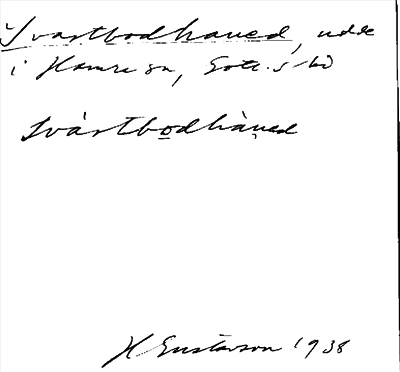 Svartbodhaued, udde
i Hamra sn, Gotl. s hd
Svártbodhàued
H Gustavson 1938